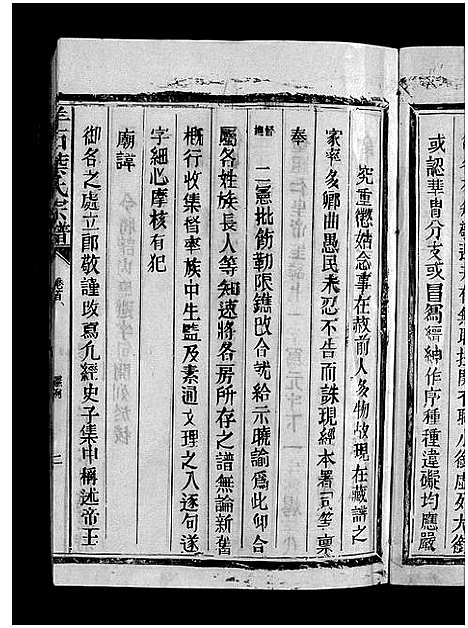 或認華胄分支或冒為縉紳作序種種違礙均應嚴
究重懲姑念事在赦前人多物故現在藏譜之
家率多鄉曲愚民未忍不告而誅現經本署司等稟
奉
督撫二憲批飭勒限鐫改合就給示曉諭為此仰合
屬各姓族長人等知速將各房所存之譜無論新舊
概行收集督率族中生監及素通文理之人逐句逐
字細心摩核有犯
廟諱
御名之處立即敬謹改寫凡經史子集中稱述帝王
羊石葉氏宗譜
卷首
二